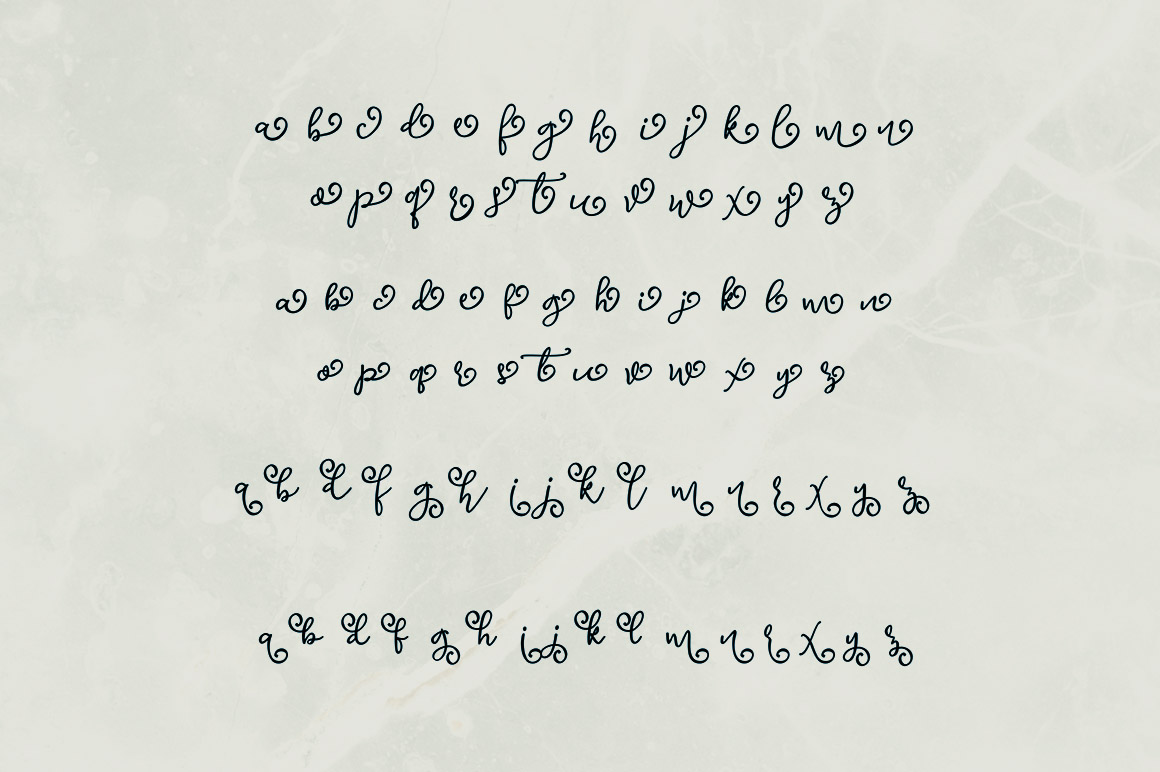 a b c d e f g h i j k l m n
o p q r s t u v w x y z
a b c d e f g h i j k l m n
o p q r s t u v w x y z
a b d f g h i j k l m n r x y z
a b d f g h i j k l m n r x y z